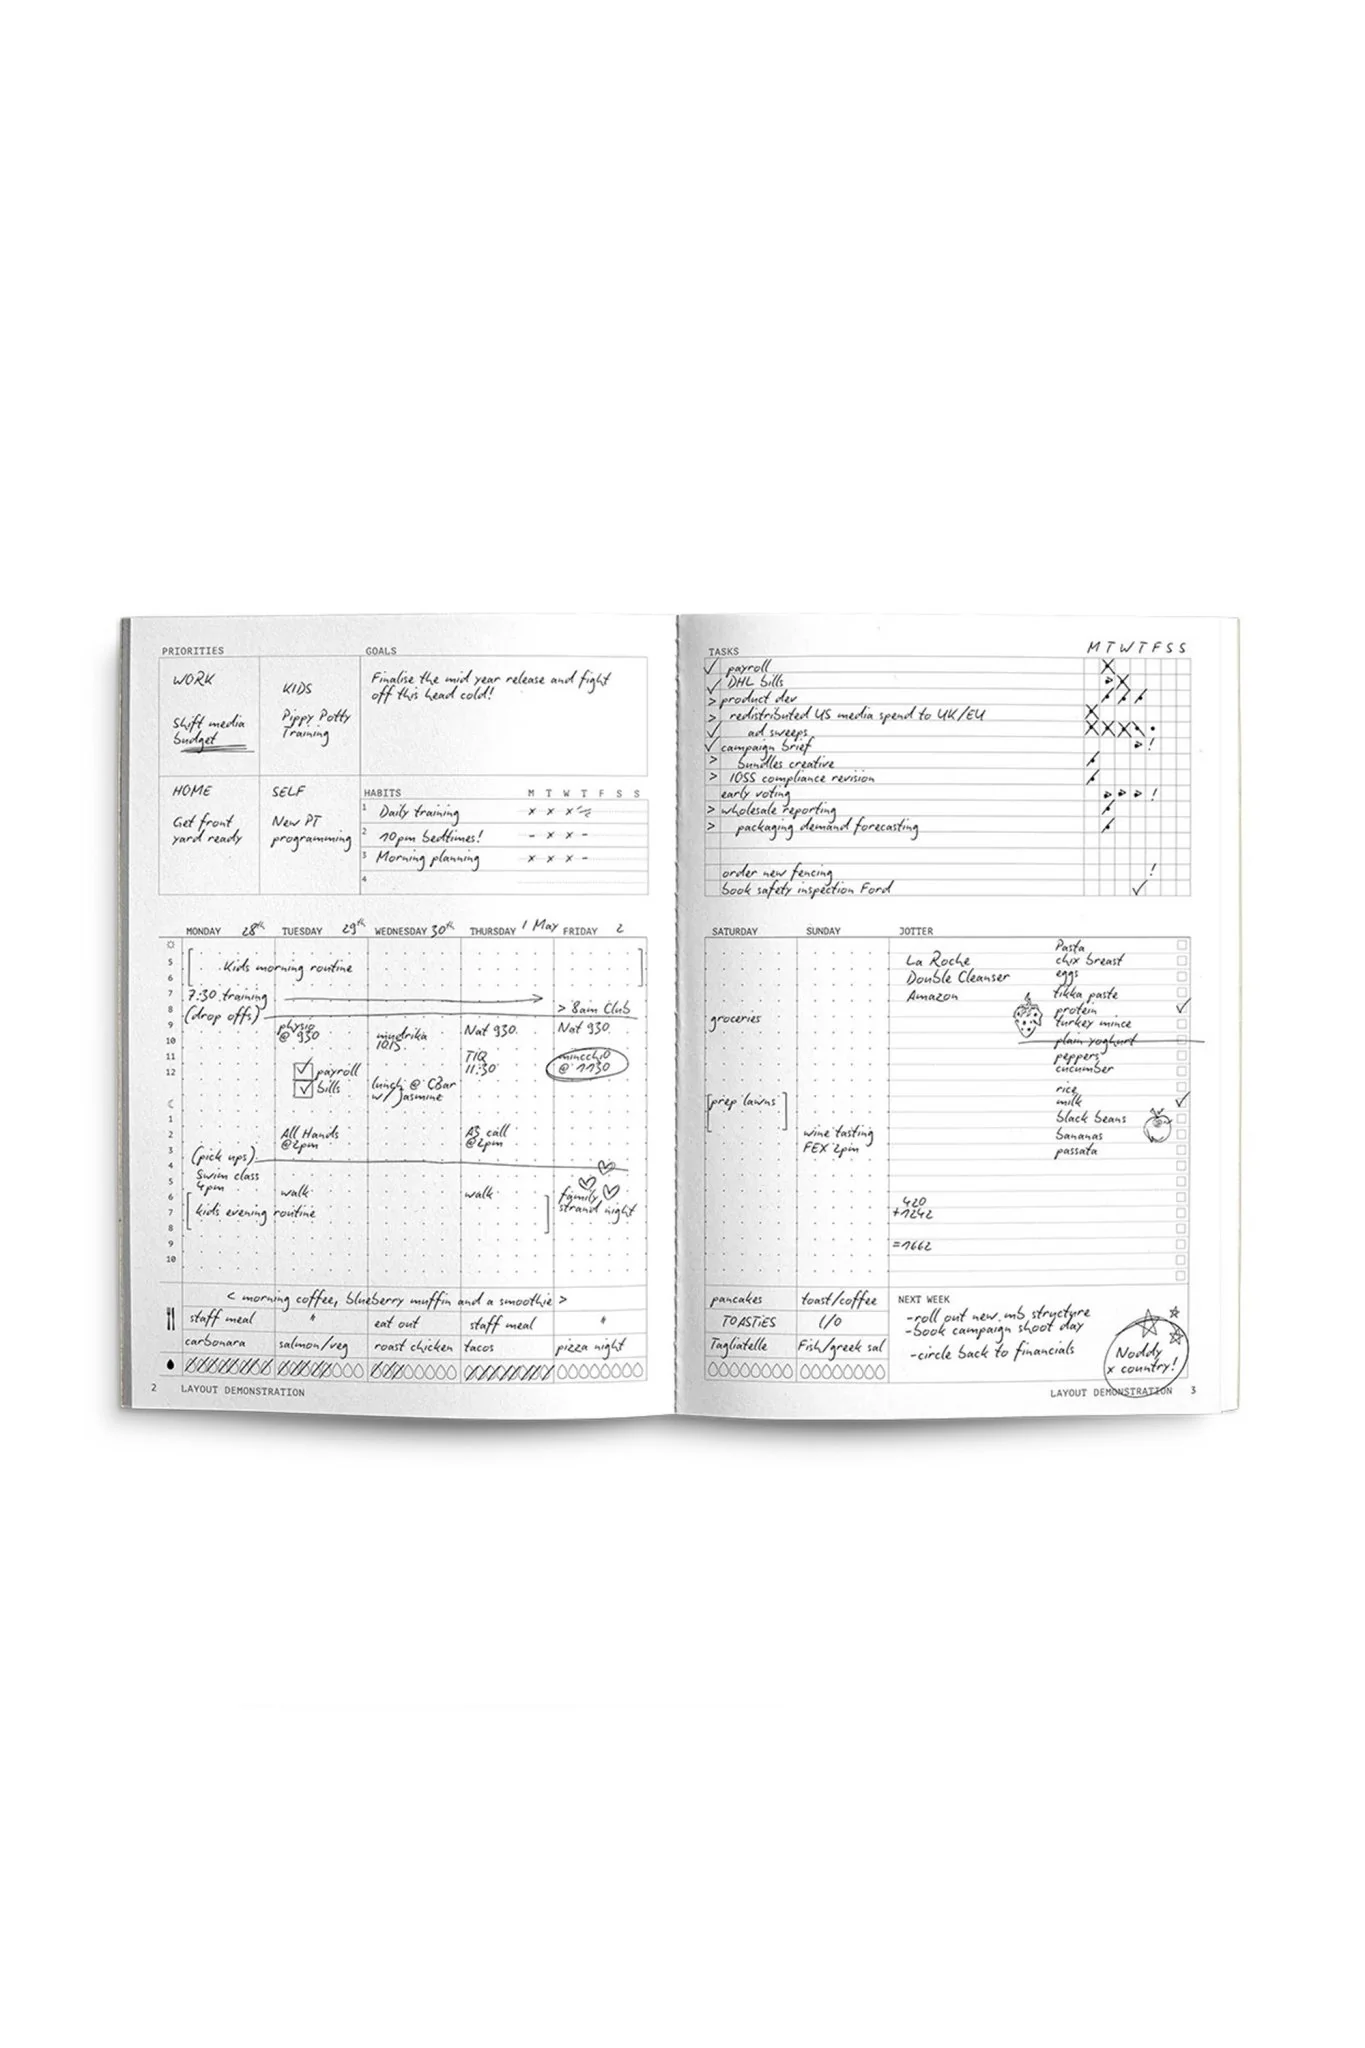 PRIORITIES
WORK
Shift media
budget
KIDS
Pippy Potty
Training
HOME
Get front
yard ready
SELF
New PT
programming
GOALS
Finalise the mid year release and fight
off this head cold!
HABITS M T W T F S S
1 Daily training x x x
2 10pm bedtimes! - x x -
3 Morning planning - x x x -
4
MONDAY 28th TUESDAY 29th WEDNESDAY 30th THURSDAY 1 May FRIDAY 2
5
6
7
8
9
10
11
12
1
2
3
4
5
6
7
8
9
10
Kids morning routine
7:30 training
(drop offs)
> 8am Club
physio
@ 930
mudrika
1015
Nat 930
Nat 930
payroll
bills
lunch @ CBar
w/ Jasmine
TIQ
11:30
@ 1130
All Hands
@2pm
A3 call
@2pm
(pick ups)
Swim class
4pm
walk
walk
family
strand night
kids evening routine
< morning coffee, blueberry muffin and a smoothie >
staff meal " eat out staff meal "
carbonara salmon/veg roast chicken tacos pizza night
2 LAYOUT DEMONSTRATION
TASKS M T W T F S S
payroll
DHL bills
> product dev
> redistributed US media spend to UK/EU
ad sweeps
campaign brief !
> bundles creative
> IOSS compliance revision
early voting !
> wholesale reporting
> packaging demand forecasting
order new fencing !
book safety inspection Ford
SATURDAY SUNDAY JOTTER
groceries
[prep lawns]
wine tasting
FEX 2pm
La Roche
Double Cleanser
Amazon
Pasta
chix breast
eggs
tikka paste
protein
turkey mince
plain yoghurt
peppers
cucumber
rice
milk
black beans
bananas
passata
420
+1242
=1662
pancakes toast/coffee
TOASTIES L/O
Tagliatelle Fish/greek sal
NEXT WEEK
-roll out new mb structure
-book campaign shoot day
-circle back to financials
Noddy
x country!
LAYOUT DEMONSTRATION 3